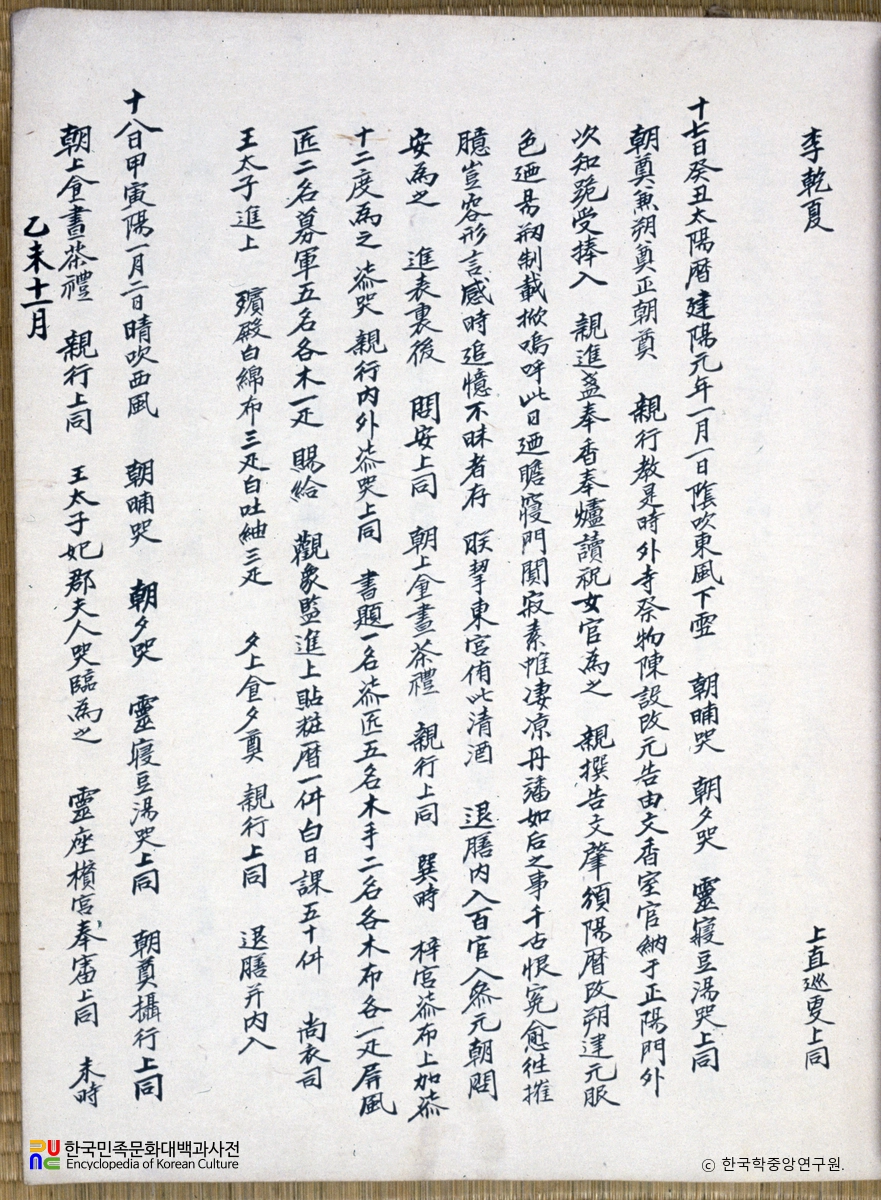 李乾夏 上直巡更上同
十七日癸丑太陽曆建陽元年一月一日陰吹東風下雪 朝晡哭 朝夕哭 靈寢豆湯哭上同
朝奠兼朔奠正朝奠 親行教是時外寺祭物陳設改元告由文香室官納于正陽門外
次知跪受捧入 親進盞奉香奉爐讀祝女官為之 親撰告文肇頒陽曆改朔建元服
色廼易初制載掀嗚呼此日廼瞻寢門闃寂素帷凄凉丹旛如后之事千古恨寃愈徃摧
臆豈容形言感時追憶不昧者存 朕挈東宮侑此清酒 退膳內入百官入叅元朝問
安為之 進表裏後 問安上同 朝上食晝茶禮 親行上同 巽時 梓宮漆布上加漆
十二度為之 漆哭親行內外漆哭上同 書題一名漆匠五名木手二名各木布各一疋屏風
匠二名募軍五名各木一疋 賜給 觀象監進上貼粧曆一件白日課五十件 尚衣司
王太子進上 殯殿白綿布三疋白吐紬三疋 夕上食夕奠 親行上同 退膳并內入
十八日甲寅陽一月二日晴吹西風 朝晡哭 朝夕哭 靈寢豆湯哭上同 朝奠攝行上同
朝上食晝茶禮 親行上同 王太子妃郡夫人哭臨為之 靈座殯宮奉審上同 未時
乙未十一月
한국민족문화대백과사전
Encyclopedia of Korean Culture
ⓒ 한국학중앙연구원.